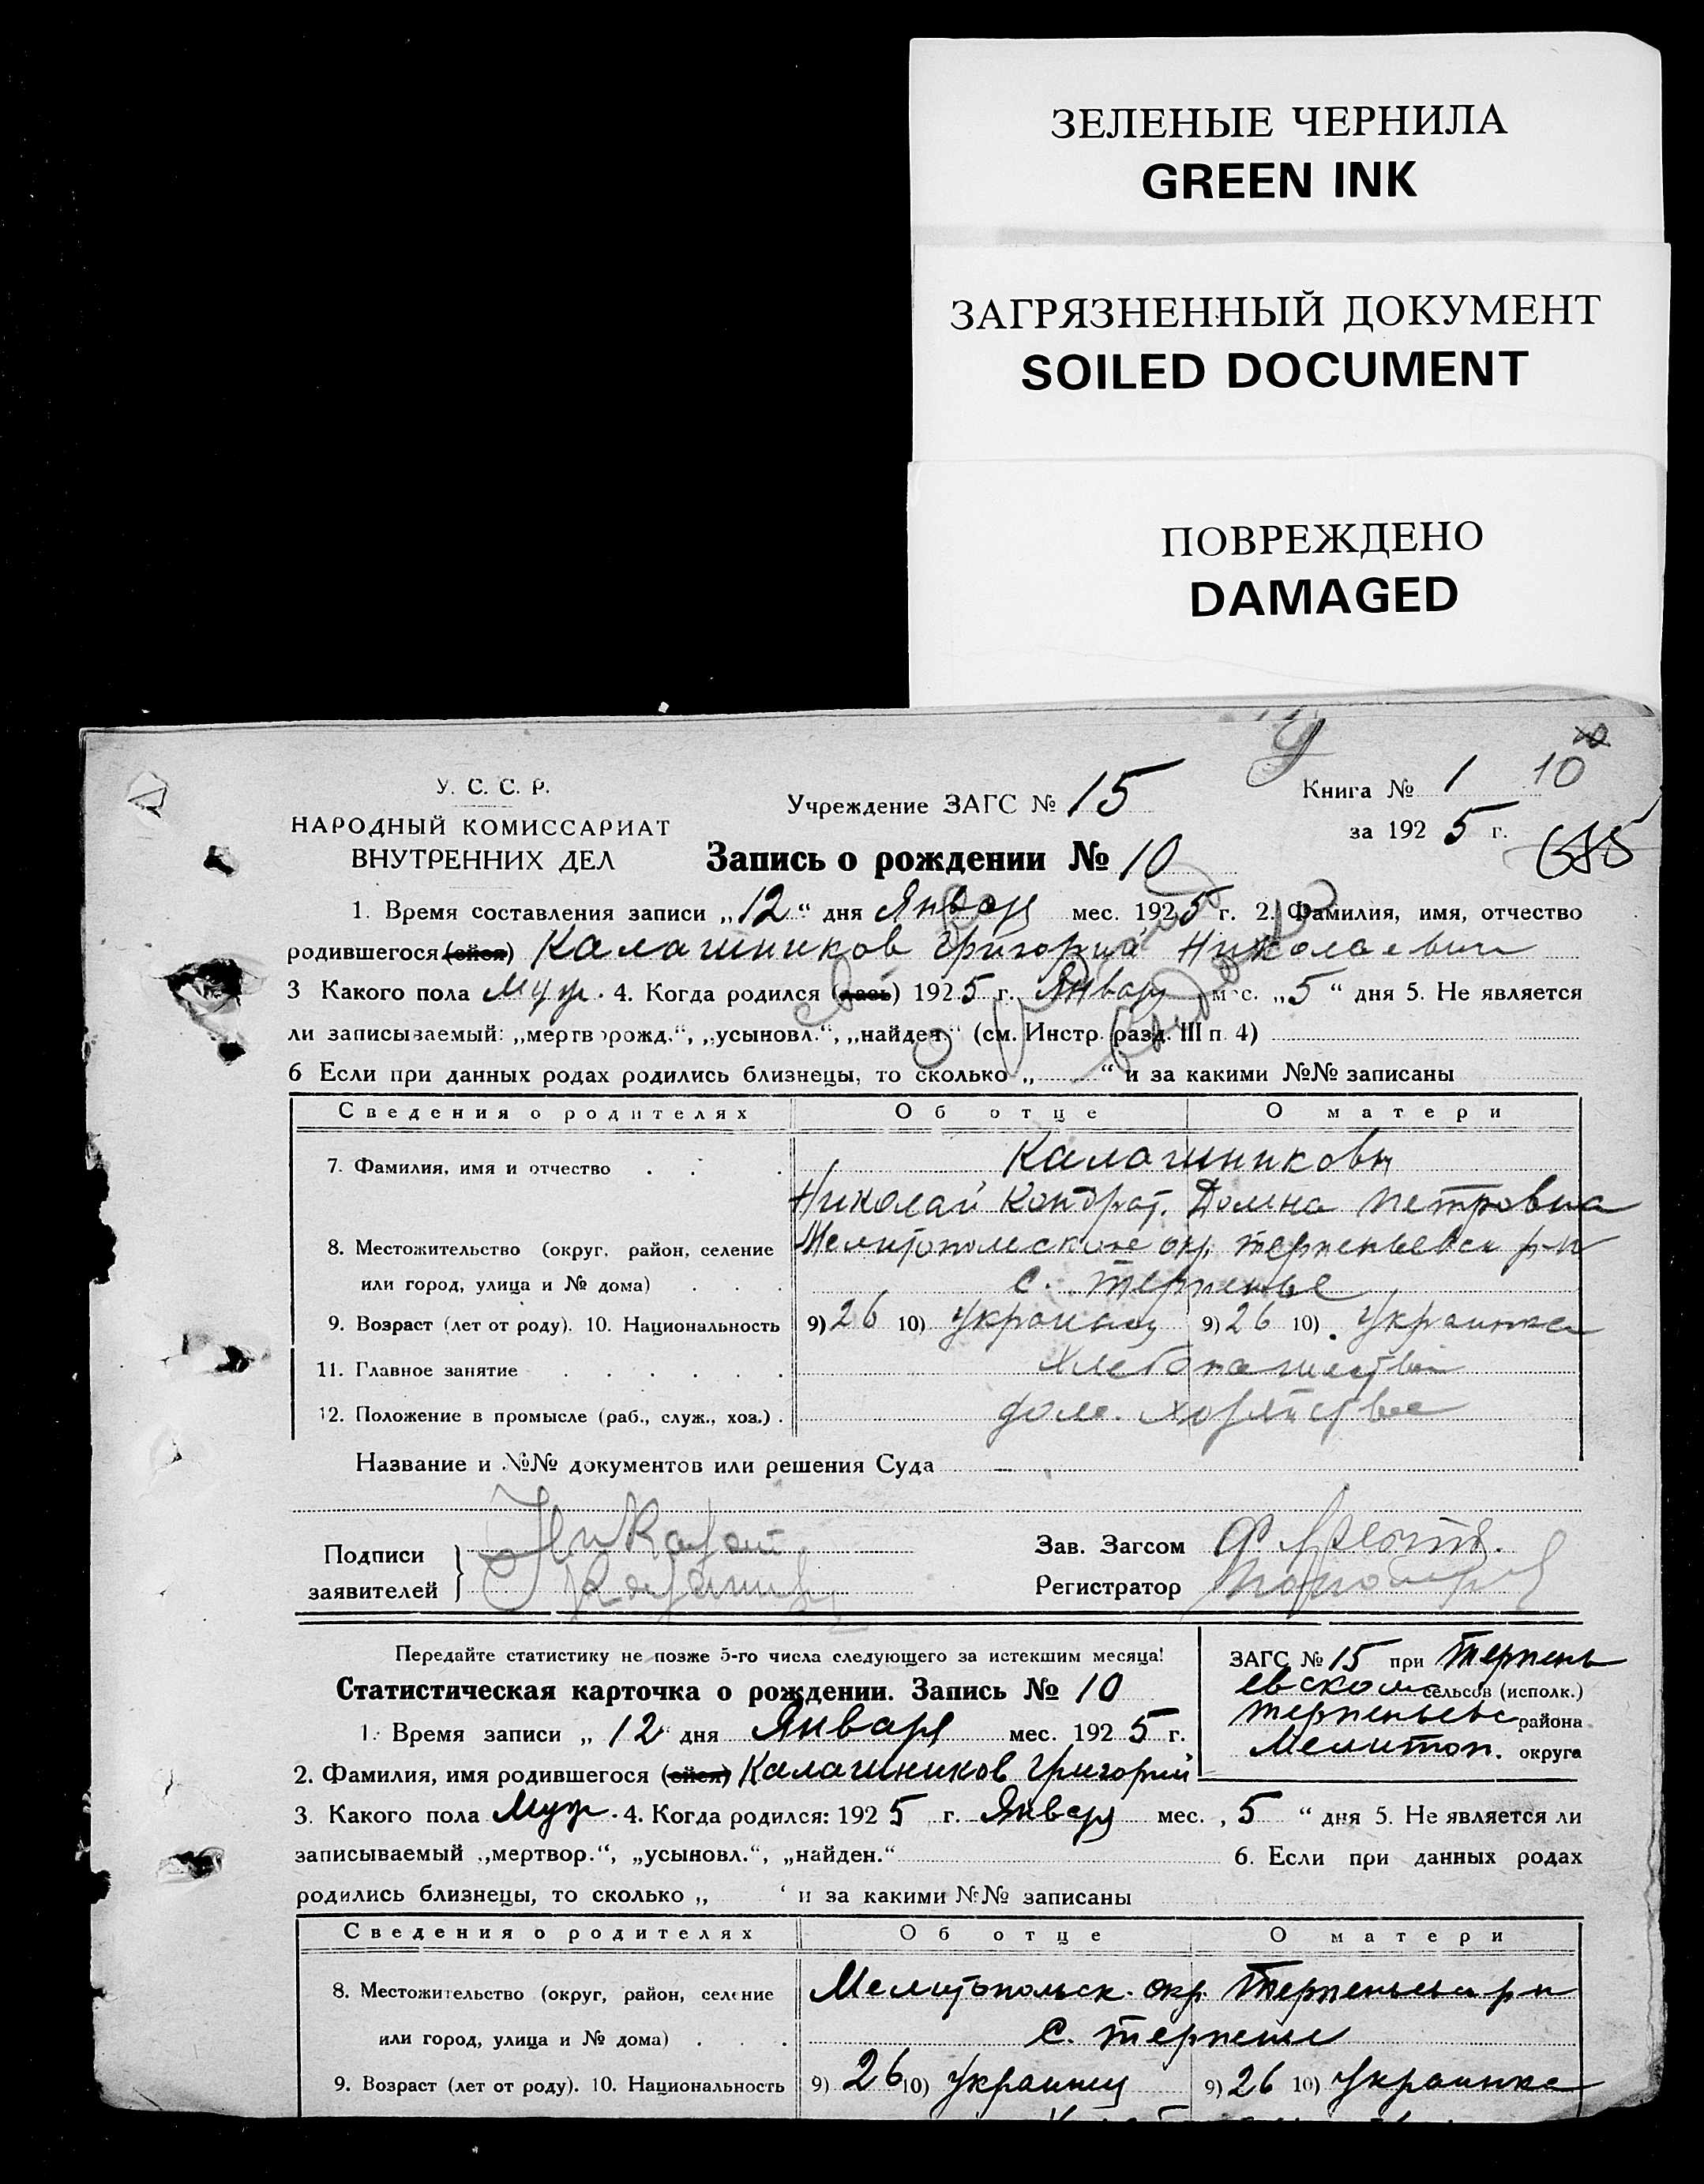 ЗЕЛЕНЫЕ ЧЕРНИЛА
GREEN INK
ЗАГРЯЗНЕННЫЙ ДОКУМЕНТ
SOILED DOCUMENT
ПОВРЕЖДЕНО
DAMAGED
У. С. С. Р.
НАРОДНЫЙ КОМИССАРИАТ
ВНУТРЕННИХ ДЕЛ
Учреждение ЗАГС № 15
Книга № 1 10
за 192 5 г.
Запись о рождении № 10
1. Время составления записи „12“ дня Января мес. 1925 г. 2. Фамилия, имя, отчество
родившегося (ейся) Калашников Григорий Николаевич
3 Какого пола Муж. 4. Когда родился (лась) 1925 г. Января мес. „5“ дня 5. Не является
ли записываемый: „мертворожд.“, „усыновл.“, „найден.“ (см. Инстр. разд. III п 4)
6 Если при данных родах родились близнецы, то сколько „ “ и за какими №№ записаны
Сведения о родителях Об отце О матери
7. Фамилия, имя и отчество Калашниковы
Николай Кондрат. Домна Петровна
8. Местожительство (округ, район, селение Мелитопольское окр. Терпеньевск р-н
или город, улица и № дома) с. Терпенье
9. Возраст (лет от роду). 10. Национальность 9) 26 10) Украинец 9) 26 10) Украинка
11. Главное занятие Хлебопашество
12. Положение в промысле (раб., служ., хоз.)
Название и №№ документов или решения Суда
Подписи
заявителей
Зав. Загсом
Регистратор
Передайте статистику не позже 5-го числа следующего за истекшим месяца!
Статистическая карточка о рождении. Запись № 10
ЗАГС № 15 при Терпень
евском сельсов (исполк.)
Терпеньевс района
Мелитоп. округа
1. Время записи „12“ дня Января мес. 1925 г.
2. Фамилия, имя родившегося (ейся) Калашников Григорий
3. Какого пола Муж. 4. Когда родился: 1925 г. Января мес. „5“ дня 5. Не является ли
записываемый „мертвор.“, „усыновл.“, „найден.“ 6. Если при данных родах
родились близнецы, то сколько „ “ и за какими №№ записаны
Сведения о родителях Об отце О матери
8. Местожительство (округ, район, селение Мелитопольск. окр. р-н
или город, улица и № дома) с. Терпенье
9. Возраст (лет от роду). 10. Национальность 9) 26 10) Украинец 9) 26 10) Украинка